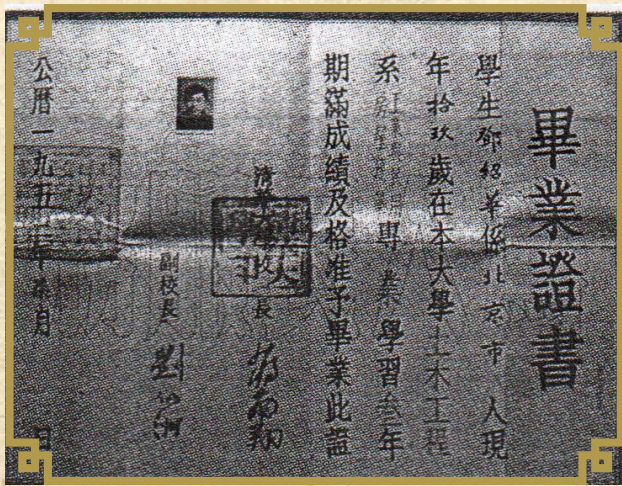 畢業證書
學生 紹華係北京市 人現
年拾玖歲在本大學土木工程
系 專業學習叁年
期滿成績及格准予畢業此證
清華大學校長 蔣南翔
副校長 劉仙洲
公曆一九五 年 月 日